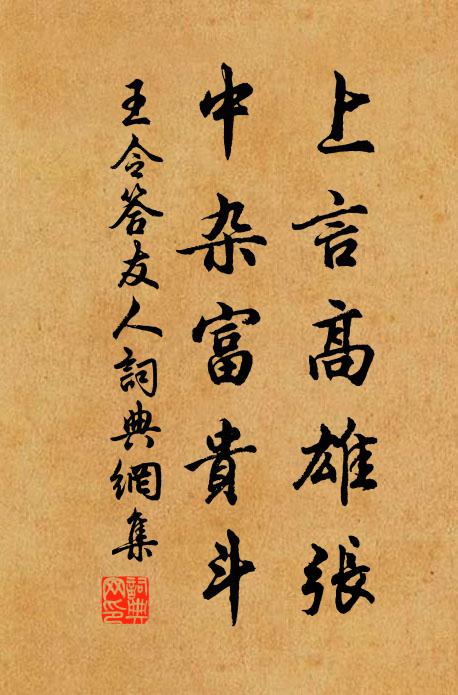 上言高雄張
中杂富貴斗
王令答友人詞典網集
詞典網印